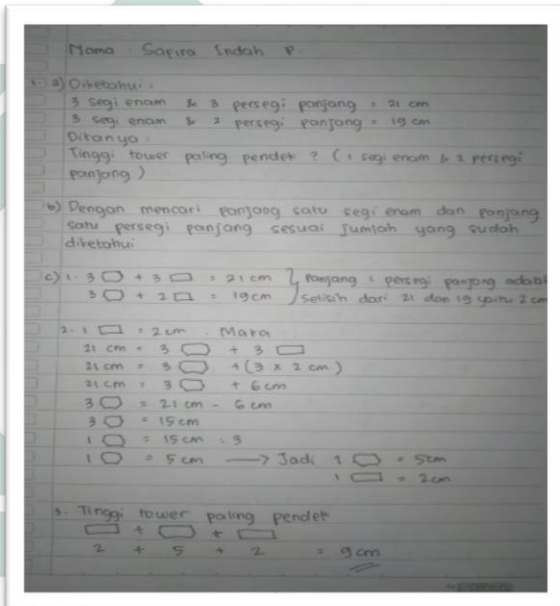 Nama : Sapira Indah P.
1. a) Diketahui :
3 segi enam & 3 persegi panjang = 21 cm
3 segi enam & 2 persegi panjang = 19 cm
Ditanya :
Tinggi tower paling pendek ? (1 segi enam & 2 persegi
panjang)
b) Dengan mencari panjang satu segi enam dan panjang
satu persegi panjang sesuai jumlah yang sudah
diketahui
c) 1. 3 ⬡ + 3 ▭ = 21 cm } Panjang 1 persegi panjang adalah
3 ⬡ + 2 ▭ = 19 cm selisih dari 21 dan 19 yaitu 2 cm
2. 1 ▭ = 2 cm . Maka
21 cm = 3 ⬡ + 3 ▭
21 cm = 3 ⬡ + (3 x 2 cm)
21 cm = 3 ⬡ + 6 cm
3 ⬡ = 21 cm - 6 cm
3 ⬡ = 15 cm
1 ⬡ = 15 cm : 3
1 ⬡ = 5 cm → Jadi 1 ⬡ = 5cm
1 ▭ = 2cm
3. Tinggi tower paling pendek
▭ + ⬡ + ▭
2 + 5 + 2 = 9 cm